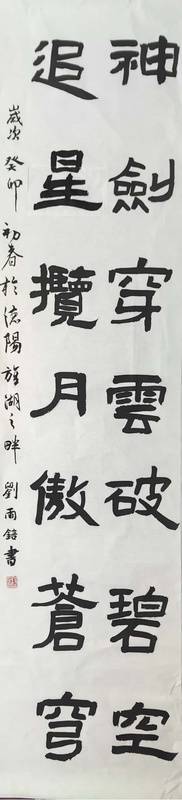 神劍穿雲破碧空
追星攬月傲蒼穹
歲次癸卯初春於濾陽旌湖之畔劉雨鎔書